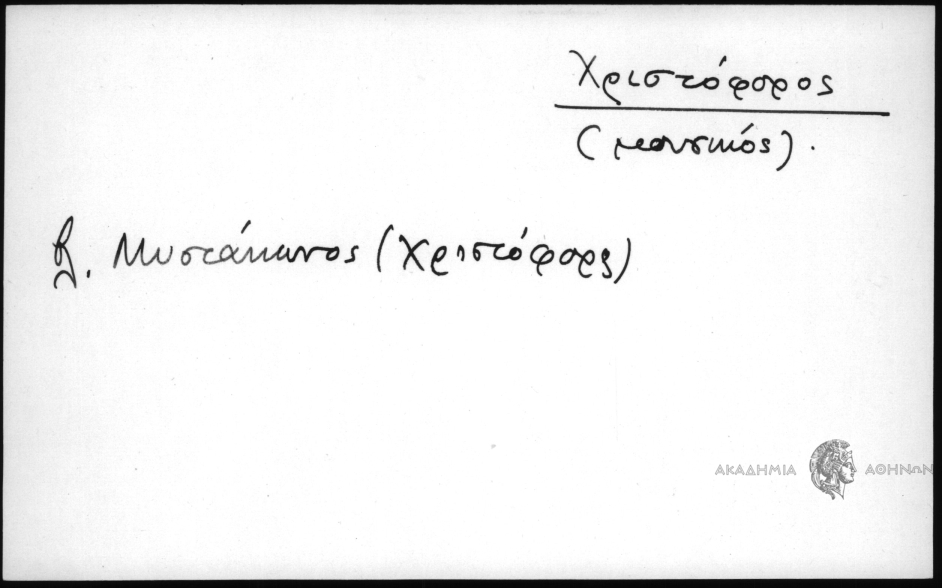 Χριστόφορος
(μουσικός).
βλ. Μυστάκωνος (Χριστόφορος)
ΑΚΑΔΗΜΙΑ ΑΘΗΝΩΝ